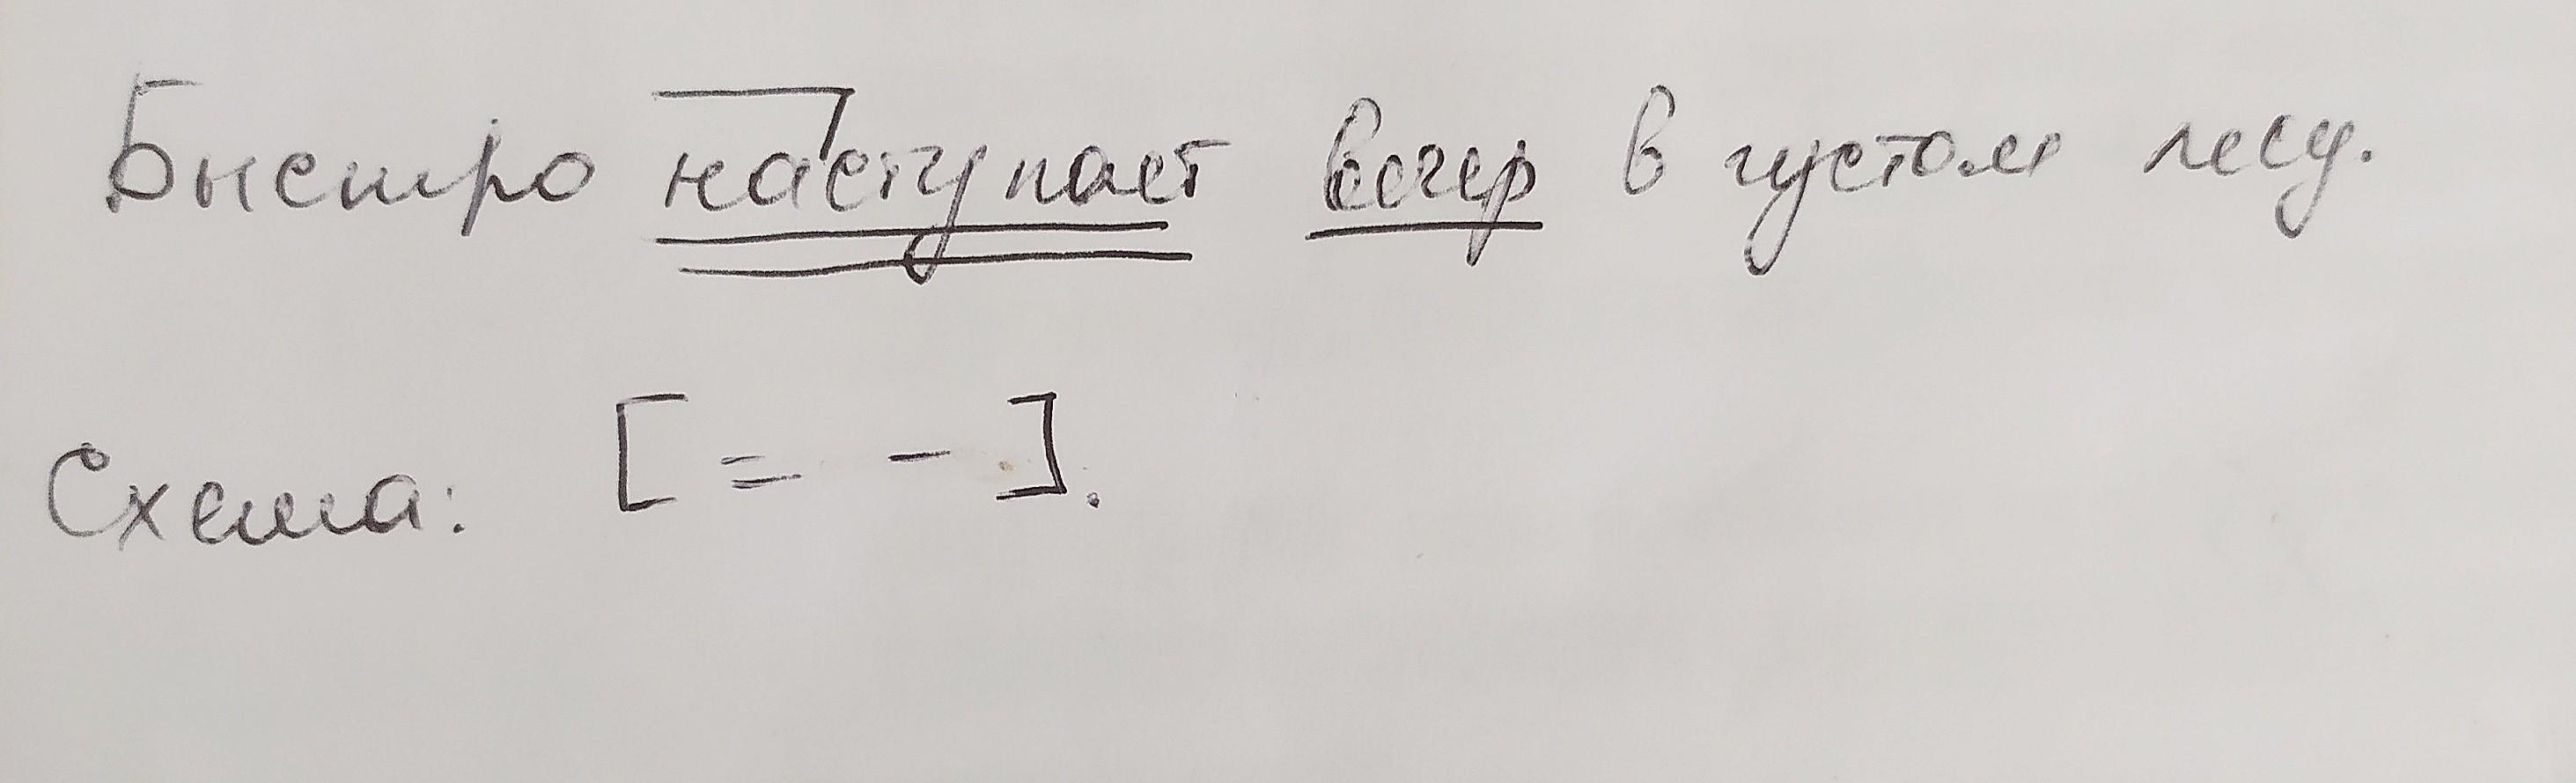 Быстро наступает вечер в густом лесу.
Схема: [ = - ].